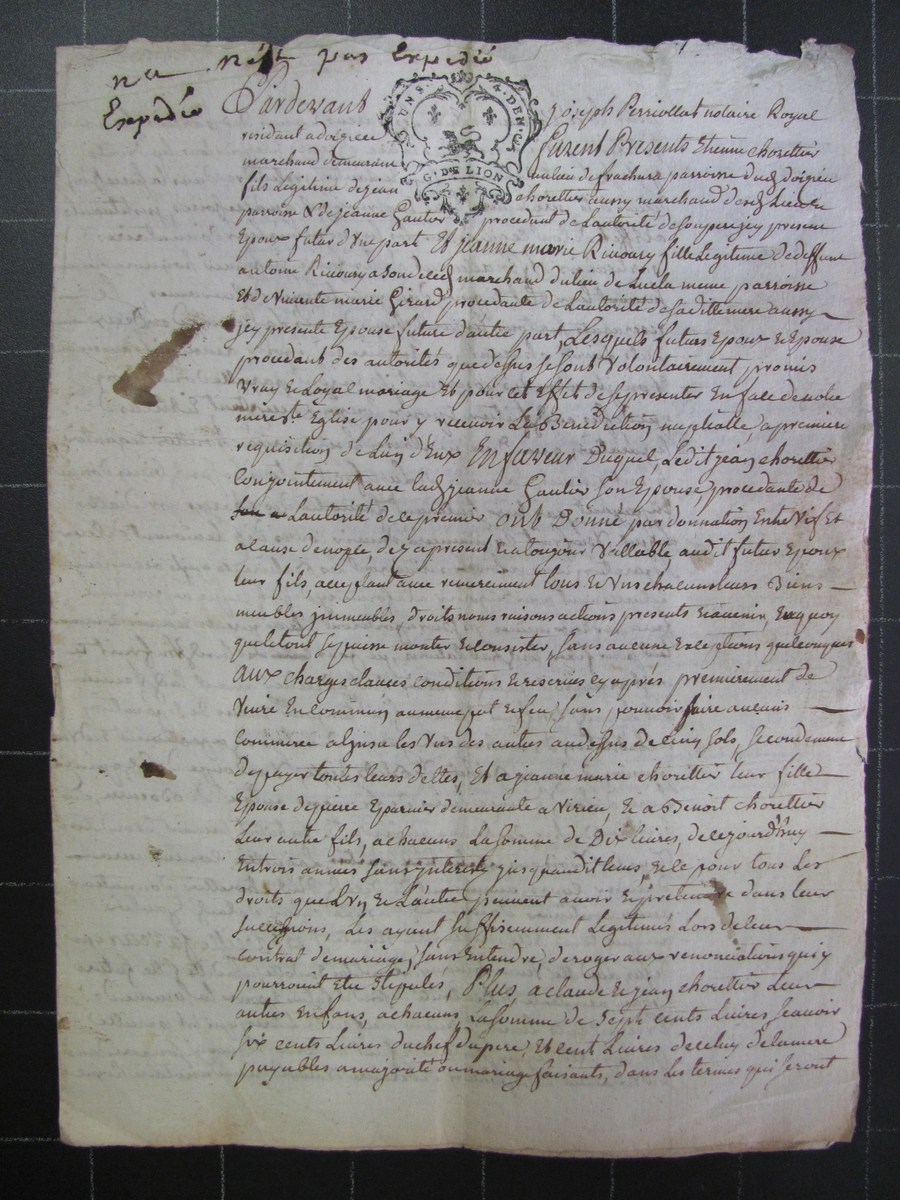 na n'ést pas Expedié
Expedié
G. DE LION
Pardevant Joseph Perriollat notaire Royal
residant a doizieu furent Presents Etienne Chorettier
marchand demeurant au lieu de frachura parroisse dud. doizieu
fils Legitime de jean Chorettier aussy marchand desd. Lieu &
parroisse & de jeanne Gautier procedant de Lautorité de son pere jcy present
Epoux futur d'une part Et jeanne marie Ricoury fille Legitime de deffunt
antoine Ricoury a son deced marchand du lieu de Luela meme parroisse
Et de Vincente marie Girard procedante de Lautorité de sa ditte mere aussy
jcy presente Epouse future dautre part, Lesquels futurs Epoux & Epouse
procedant des autorités que dessus se sont Volontairement promis
Vray & Loyal mariage Et pour cet Effet de se presenter En face de notre
mere ste Eglise pour y recevoir La Benediction nuptialle, a premiere
requisition de Lun d'Eux En faveur Duquel, Ledit jean chorettier
Conjointement avec lad. jeanne Gautier son Epouse procedante de
Lautorité de ce premier ont Donné par donnation Entre Vifs Et
a cause de nopce, dez a present & a toujour Vallable, audit futur Epoux
leur fils, acceptant avec remerciment tous & Uns chacuns leurs Biens
meubles jmmeubles droits noms raisons actions presents & avenir, En quoy
que le tout se puisse monter & consister, sans aucune Exceptions quelconques
aux charges clauses conditions & reserves cy après premierement de
Vivre En commun au meme pot & feu, sans pouvoir faire aucuns
Commerce a l'insu les Uns des autres au dessus de cinq sols, secondement
de payer toutes leurs dettes, Et a jeanne marie chorettier leur fille
Epouse de pierre Eparnier demeurante a Verieu, & a Benoit chorettier
Leur autre fils, a chacuns La somme de Dix Livres, de ce jourd'huy
En trois années sans jnterests jusqu'audit tems, & ce pour tous Les
droits que L'Un & Lautre peuvent avoir & pretendre dans leur
successions, Les ayant suffisemment Legitimés Lors de leur
contrat de mariage, sans Entendre, deroger aux renonciations qui y
pourroient Etre stipulés, Plus a claude & jean chorettier Leur
autres Enfans, a chacuns La somme de Sept cents Livres sçavoir
six cents Livres du chef du pere, Et cent Livres de celuy de la mere
payables a majorité ou mariage faisants, dans Les termes qui seront